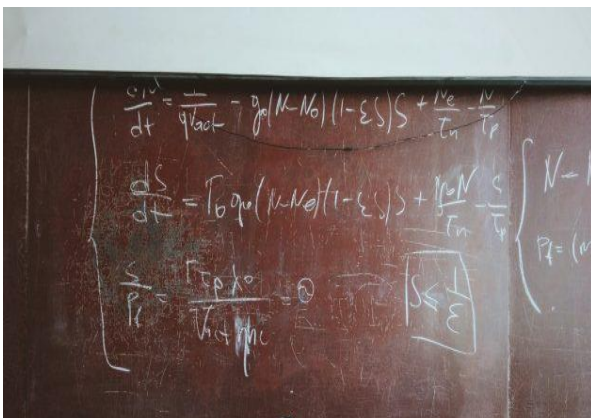 dN/dt = I/(qVact) - g₀(N-N₀)(1-εS)S + Ne/τn - N/τp
dS/dt = Γ₀g₀(N-N₀)(1-εS)S + N/τn - S/τp
S/Pf = Γτpλ₀/(Vactηhc) = ϑ
S ≤ 1/ε
N -
Pf = (m